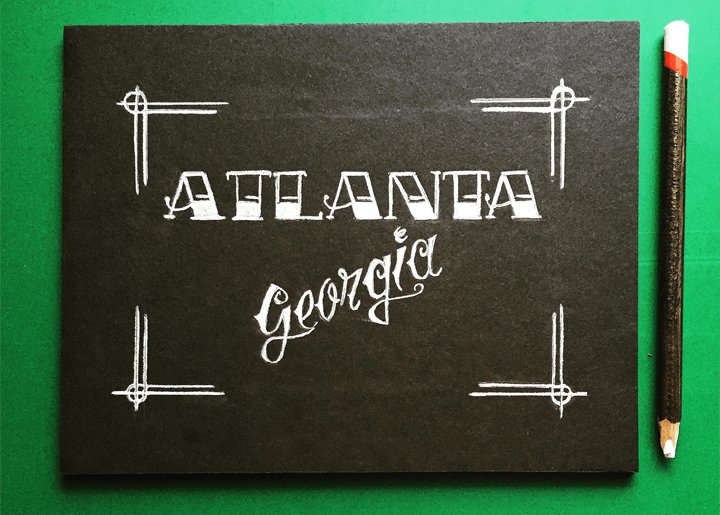 ATLANTA
Georgia